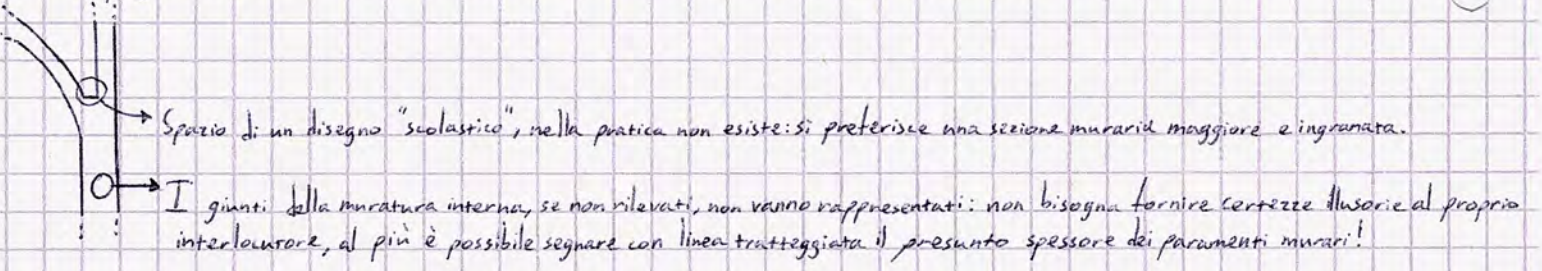 Spazio di un disegno "scolastico", nella pratica non esiste: si preferisce una sezione muraria maggiore e ingranata.
I giunti della muratura interna, se non rilevati, non vanno rappresentati: non bisogna fornire certezze illusorie al proprio
interlocutore, al più è possibile segnare con linea tratteggiata il presunto spessore dei paramenti murari!